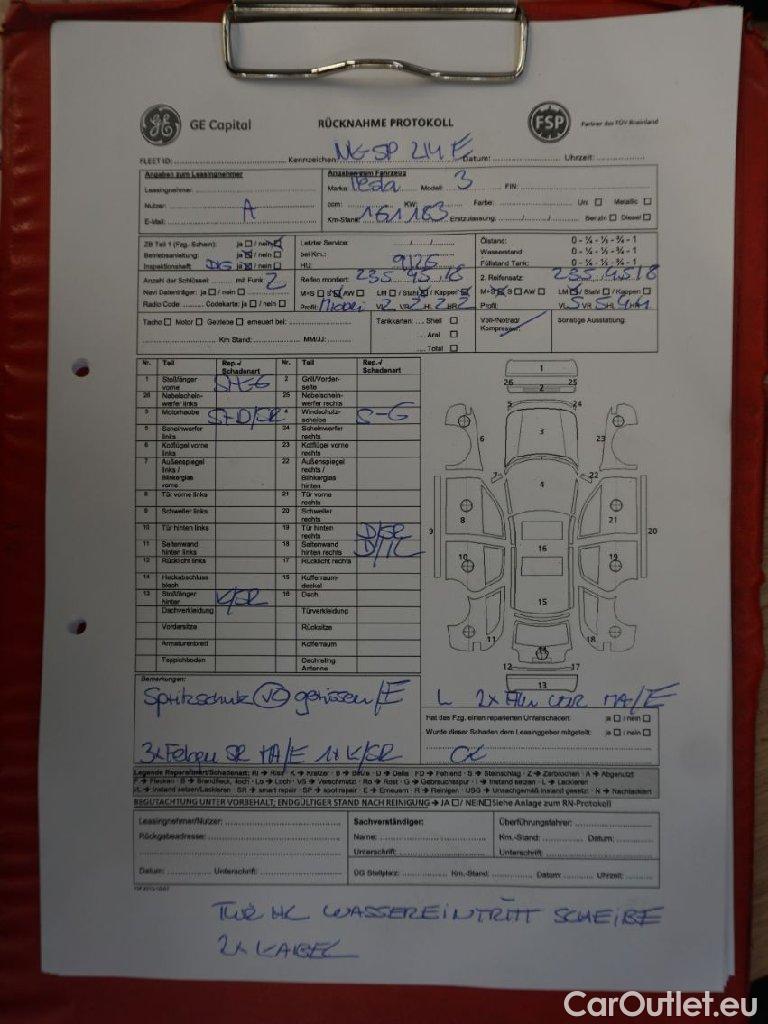 GE Capital RÜCKNAHME PROTOKOLL FSP Partner des TÜV Rheinland
FLEET ID: Kennzeichen Datum: Uhrzeit:
Angaben zum Leasingnehmer
Angaben zum Fahrzeug
Leasingnehmer:
Marke Tesla Modell: 3 FIN:
Nutzer: A
ccm: KW: Farbe: Uni Metallic
E-Mail:
Km-Stand: 161183 Erstzulassung: Benzin Diesel
ZB Teil 1 (Fzg.-Schein): ja / nein
Betriebsanleitung: ja / nein
Inspektionsheft: ja / nein
Letzter Service:
bei Km.:
HU: 9/26
Ölstand: 0 - ¼ - ½ - ¾ - 1
Wasserstand 0 - ¼ - ½ - ¾ - 1
Füllstand Tank: 0 - ¼ - ½ - ¾ - 1
Anzahl der Schlüssel: mit Funk 2
Navi Datenträger: ja / nein
Radio Code Codekarte: ja / nein
Reifen montiert: 235 45 18
M+S S AW LM / Stahl / Kappen
2. Reifensatz: 235 45 18
M+S S AW LM / Stahl / Kappen
Tacho Motor Getriebe erneuert bei:
Km Stand: MM/JJ:
Tankkarten: Shell
Aral
Total
Sonstige Ausstattung:
Nr. Teil Rep.-/ Schadenart Nr. Teil Rep.-/ Schadenart
1 Stoßfänger vorne 2 Grill/Vorderseite
26 Nebelscheinwerfer links 25 Nebelscheinwerfer rechts
3 Motorhaube S+D/SR 4 Windschutzscheibe S-G
5 Scheinwerfer links 24 Scheinwerfer rechts
6 Kotflügel vorne links 23 Kotflügel vorne rechts
7 Außenspiegel links / Blinkerglas vorne 22 Außenspiegel rechts / Blinkerglas hinten
8 Tür vorne links 21 Tür vorne rechts
9 Schweller links 20 Schweller rechts
10 Tür hinten links 19 Tür hinten rechts D/SR
11 Seitenwand hinten links 18 Seitenwand hinten rechts
12 Rücklicht links 17 Rücklicht rechts
14 Heckabschlussblech 15 Kofferraumdeckel
13 Stoßfänger hinten K/SR 16 Dach
Dachverkleidung Türverkleidung
Vordersitze Rücksitze
Armaturenbrett Kofferraum
Teppichboden Dachreling Antenne
1
26 2 25
5 24
6 3 23
7 22
4
8 21
9 20
16
10 19
15
11 14 18
12 17
13
Bemerkungen:
Spritzschutz gerissen/E
3x Felgen SR MA/E 1x K/SR
Hat das Fzg. einen reparierten Unfallschaden: ja / nein
Wurde dieser Schaden dem Leasinggeber mitgeteilt: ja / nein
BEGUTACHTUNG UNTER VORBEHALT; ENDGÜLTIGER STAND NACH REINIGUNG → JA / NEIN Siehe Anlage zum RN-Protokoll
Leasingnehmer/Nutzer: Sachverständiger: Überführungsfahrer:
Rückgabeadresse: Name: Km.-Stand: Datum:
Unterschrift: Unterschrift:
Datum: Unterschrift: ÜG Stellplatz: Km.-Stand: Datum: Uhrzeit:
TÜR HL WASSEREINTRITT SCHEIBE
2x KABEL
CarOutlet.eu